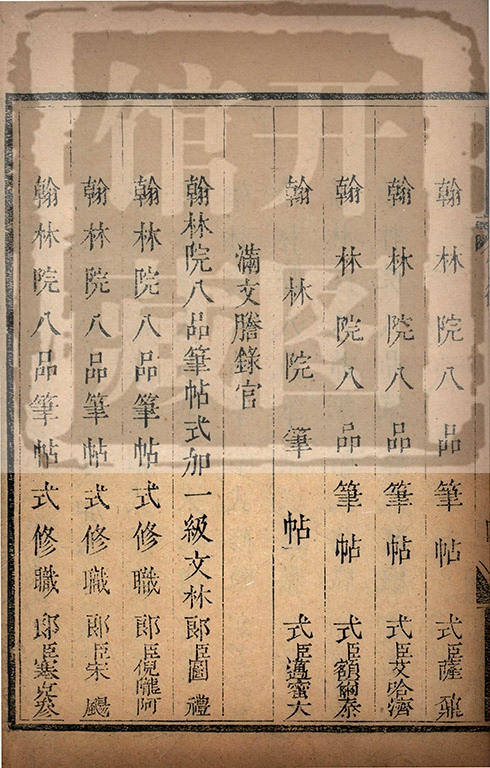 翰林院八品筆帖式臣薩鼐
翰林院八品筆帖式臣艾哈濟
翰林院八品筆帖式臣額爾泰
翰林院筆帖式臣邁蜜大
滿文謄錄官
翰林院八品筆帖式加一級文林郎臣圖禮
翰林院八品筆帖式修職郎臣倪隴阿
翰林院八品筆帖式修職郎臣宋颺
翰林院八品筆帖式修職郎臣塞克參